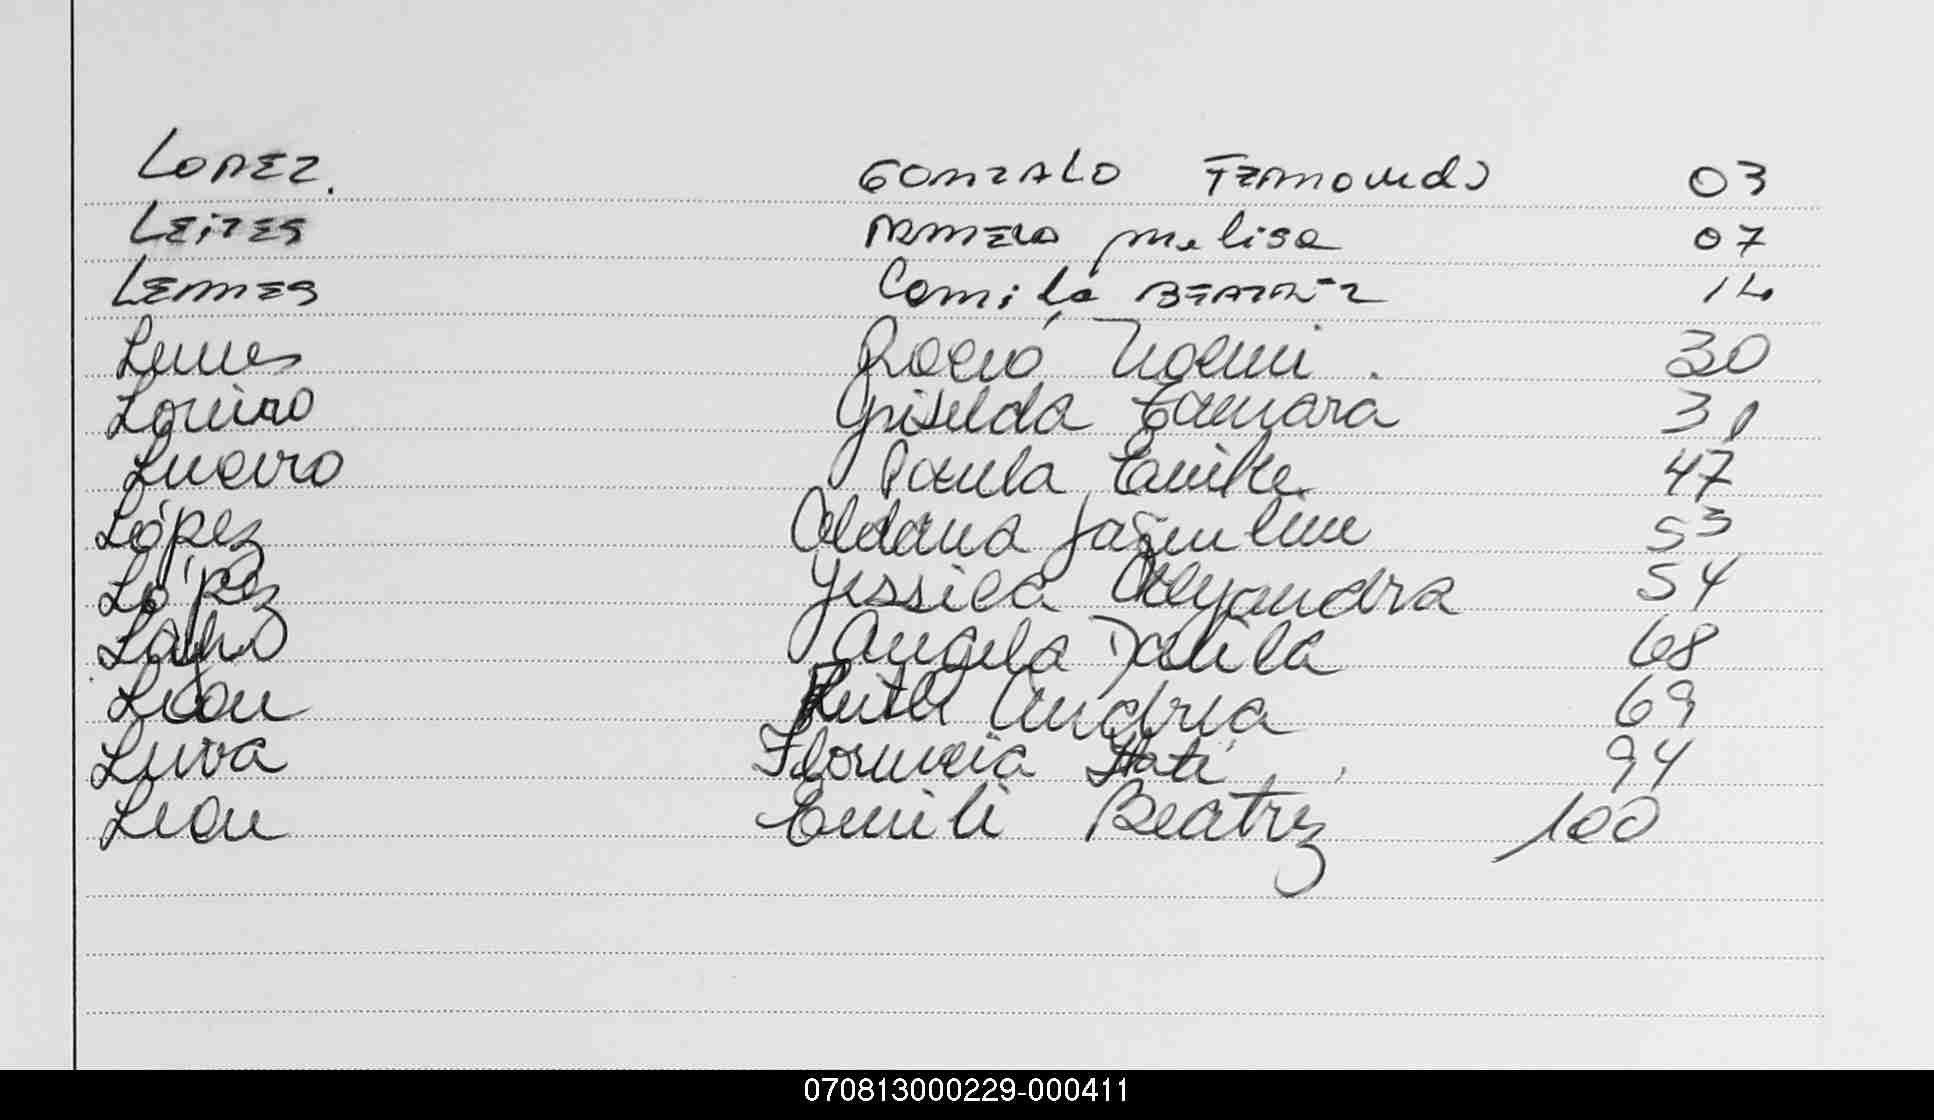 LOPEZ. GONZALO FERNANDO 03
LEITES PAMELA Melisa 07
LEMES Camila BEATRIZ 14
Lemes Rocío Noemi. 30
Loreiro Griselda Tamara 31
Lucero Paula 47
López Aldana 53
López Jessica Alejandra 54
Angela Dalila 68
Leon Ruth Andrea 69
Leiva Florencia 94
Leon Emili Beatriz 100
070813000229-000411